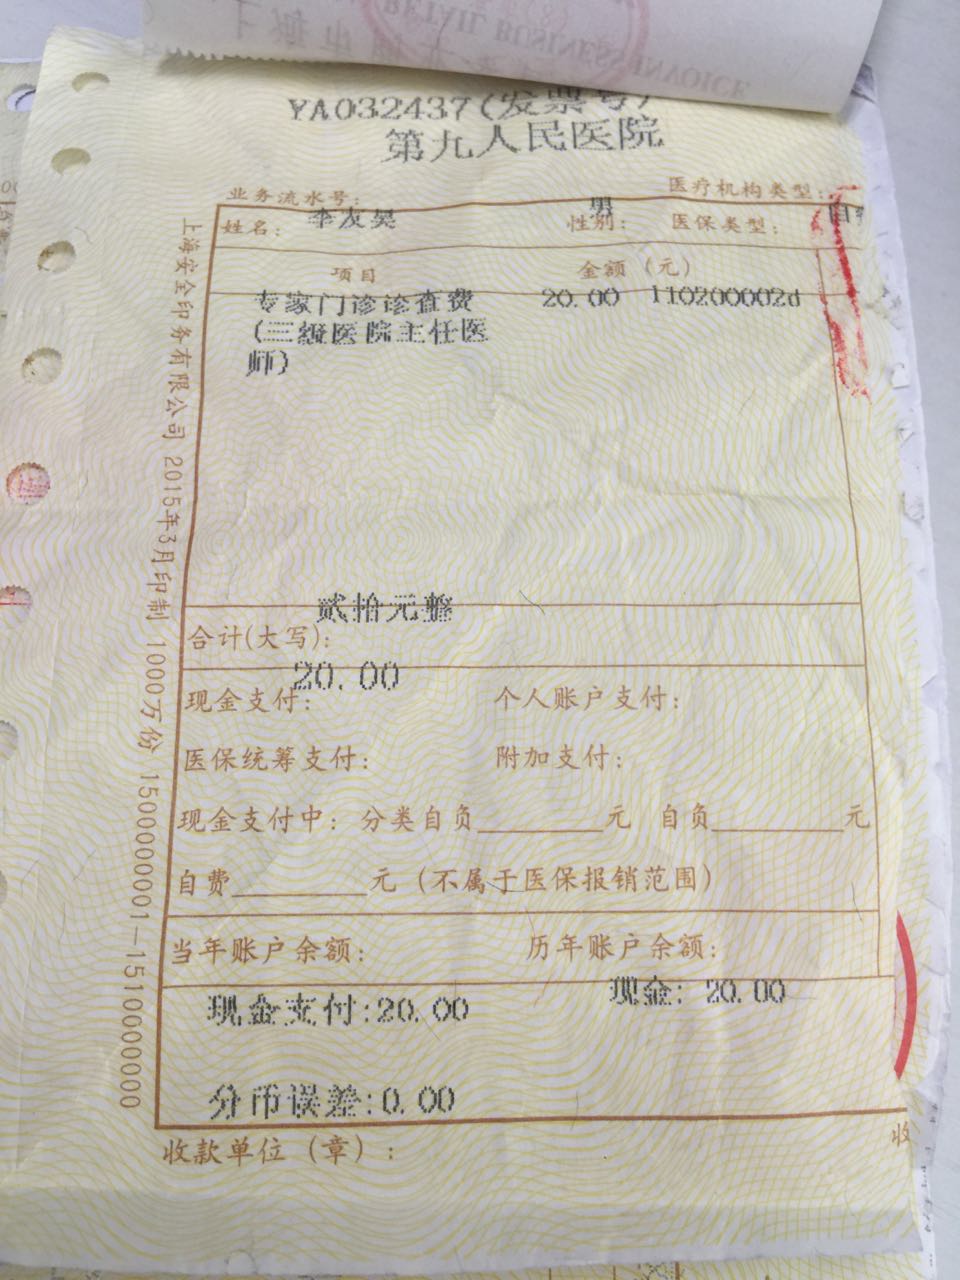 RETAIL BUSINESS INVOICE
YA032437(发票号)
第九人民医院
业务流水号: 医疗机构类型:
姓名: 李友昊 性别: 男 医保类型: 自
项目 金额（元）
专家门诊诊查费 20.00 110200002d
(三级医院主任医
师)
贰拾元整
合计(大写):
20.00
现金支付: 个人账户支付:
医保统筹支付: 附加支付:
现金支付中: 分类自负________元 自负________元
自费________元（不属于医保报销范围）
当年账户余额: 历年账户余额:
现金支付:20.00 现金: 20.00
分币误差:0.00
收款单位（章）: 收
上海安全印务有限公司 2015年3月印制 1000万份 1500000001—1510000000